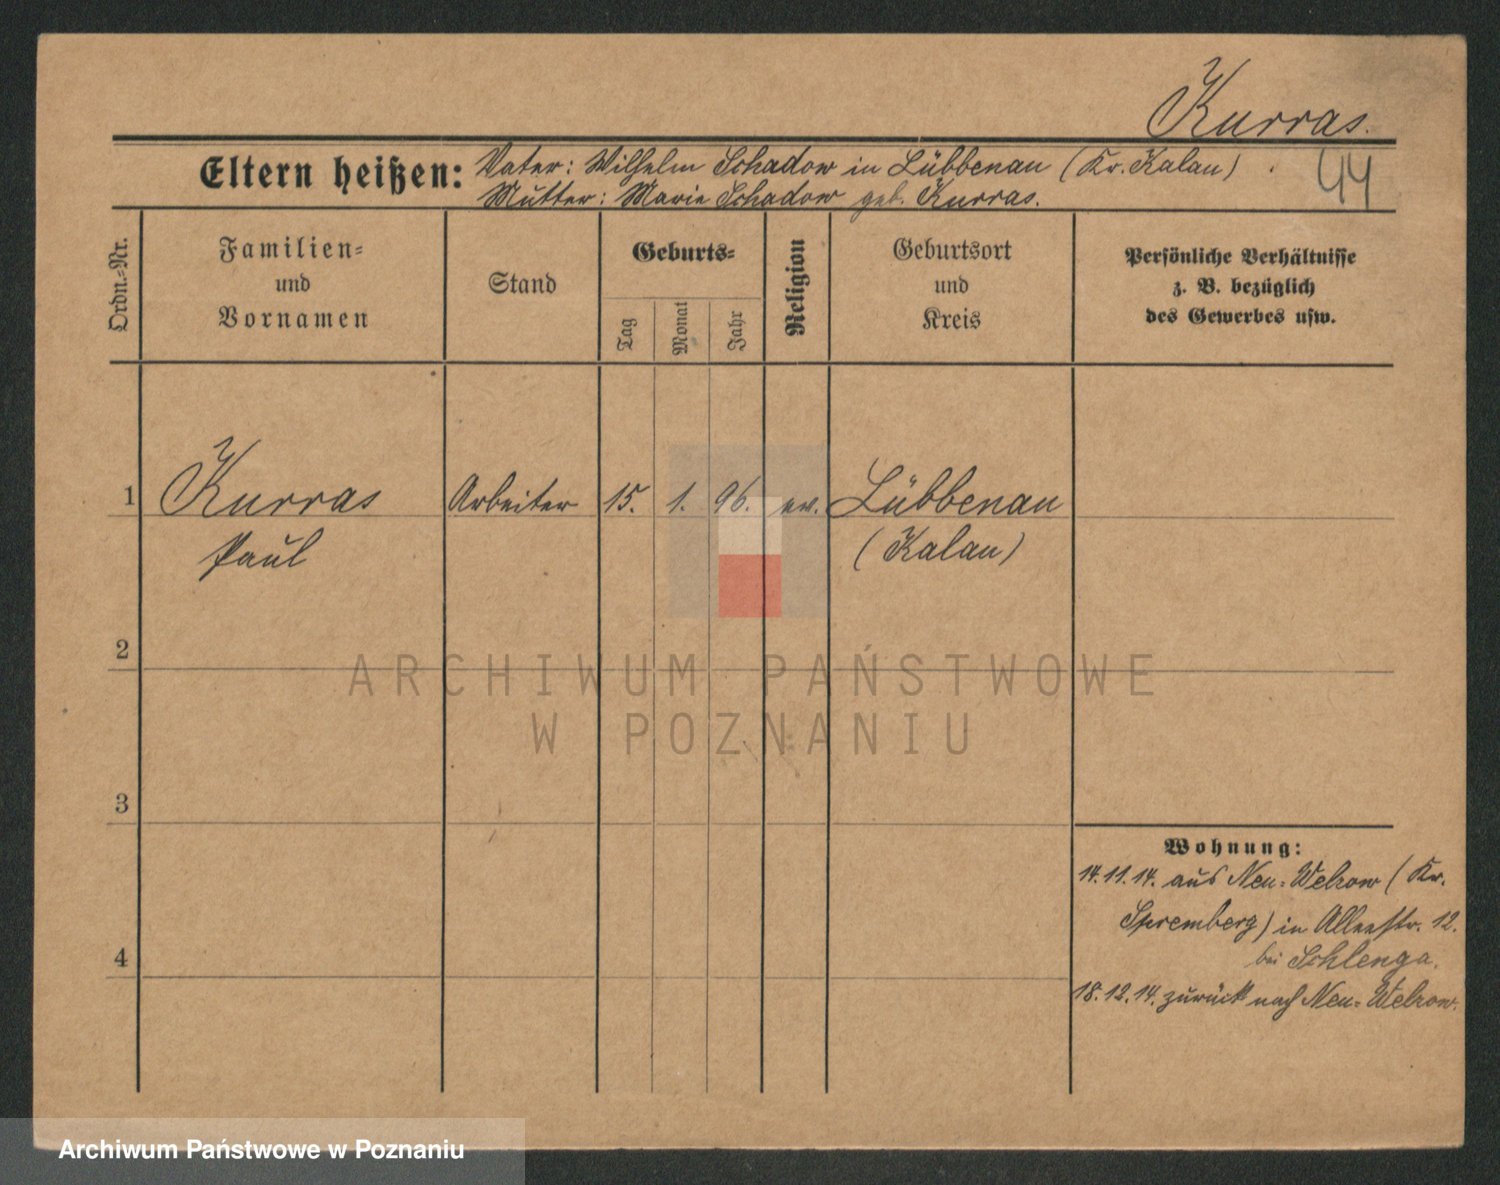 Kurras.
44
Eltern heißen: Vater: Wilhelm Schadow in Lübbenau (Kr. Kalau)
Mutter: Marie Schadow geb. Kurras.
Ordn.=Nr.
Familien=
und
Vornamen
Stand
Geburts=
Tag
Monat
Jahr
Religion
Geburtsort
und
Kreis
Persönliche Verhältnisse
z. B. bezüglich
des Gewerbes usw.
1 Kurras Arbeiter 15. 1. 96. ev. Lübbenau
Paul (Kalau)
2
ARCHIWUM PAŃSTWOWE
W POZNANIU
3
4
Wohnung:
14.11.14. aus Neu=Welzow (Kr.
Spremberg) in Alleestr. 12.
bei Schlenga.
18.12.14. zurück nach Neu=Welzow.
Archiwum Państwowe w Poznaniu